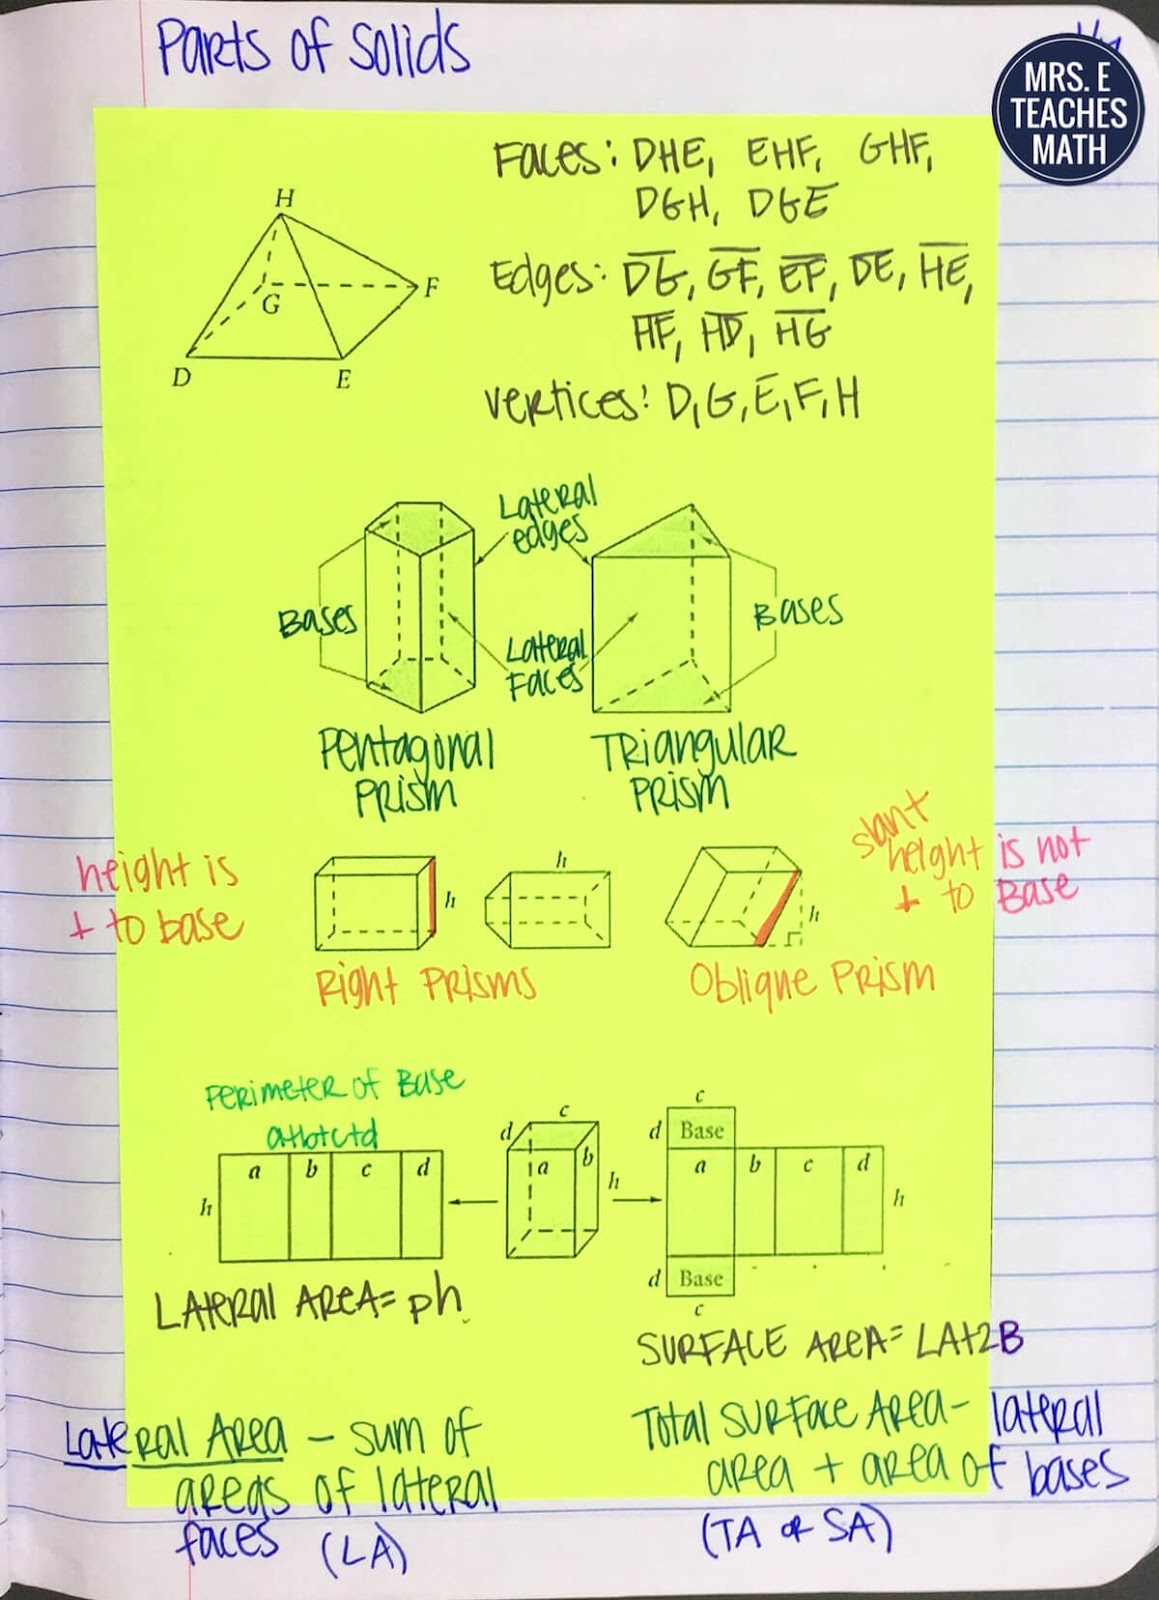 Parts of Solids
MRS. E
TEACHES
MATH
Faces: DHE, EHF, GHF,
DGH, DGE
H
F
G
D
E
Edges: DG, GF, EF, DE, HE,
HF, HD, HG
Vertices: D, G, E, F, H
Lateral
edges
Bases
Bases
Lateral
Faces
Pentagonal
Prism
Triangular
Prism
height is
⊥ to base
h
h
slant
height is not
⊥ to Base
h
Right Prisms
Oblique Prism
Perimeter of Base
a+b+c+d
a b c d
h
c
d
a
b
h
c
d Base
a b c d
h
d Base
c
Lateral Area = ph
Surface Area = LA+2B
Lateral Area - sum of
areas of lateral
faces (LA)
Total Surface Area - lateral
area + area of bases
(TA or SA)